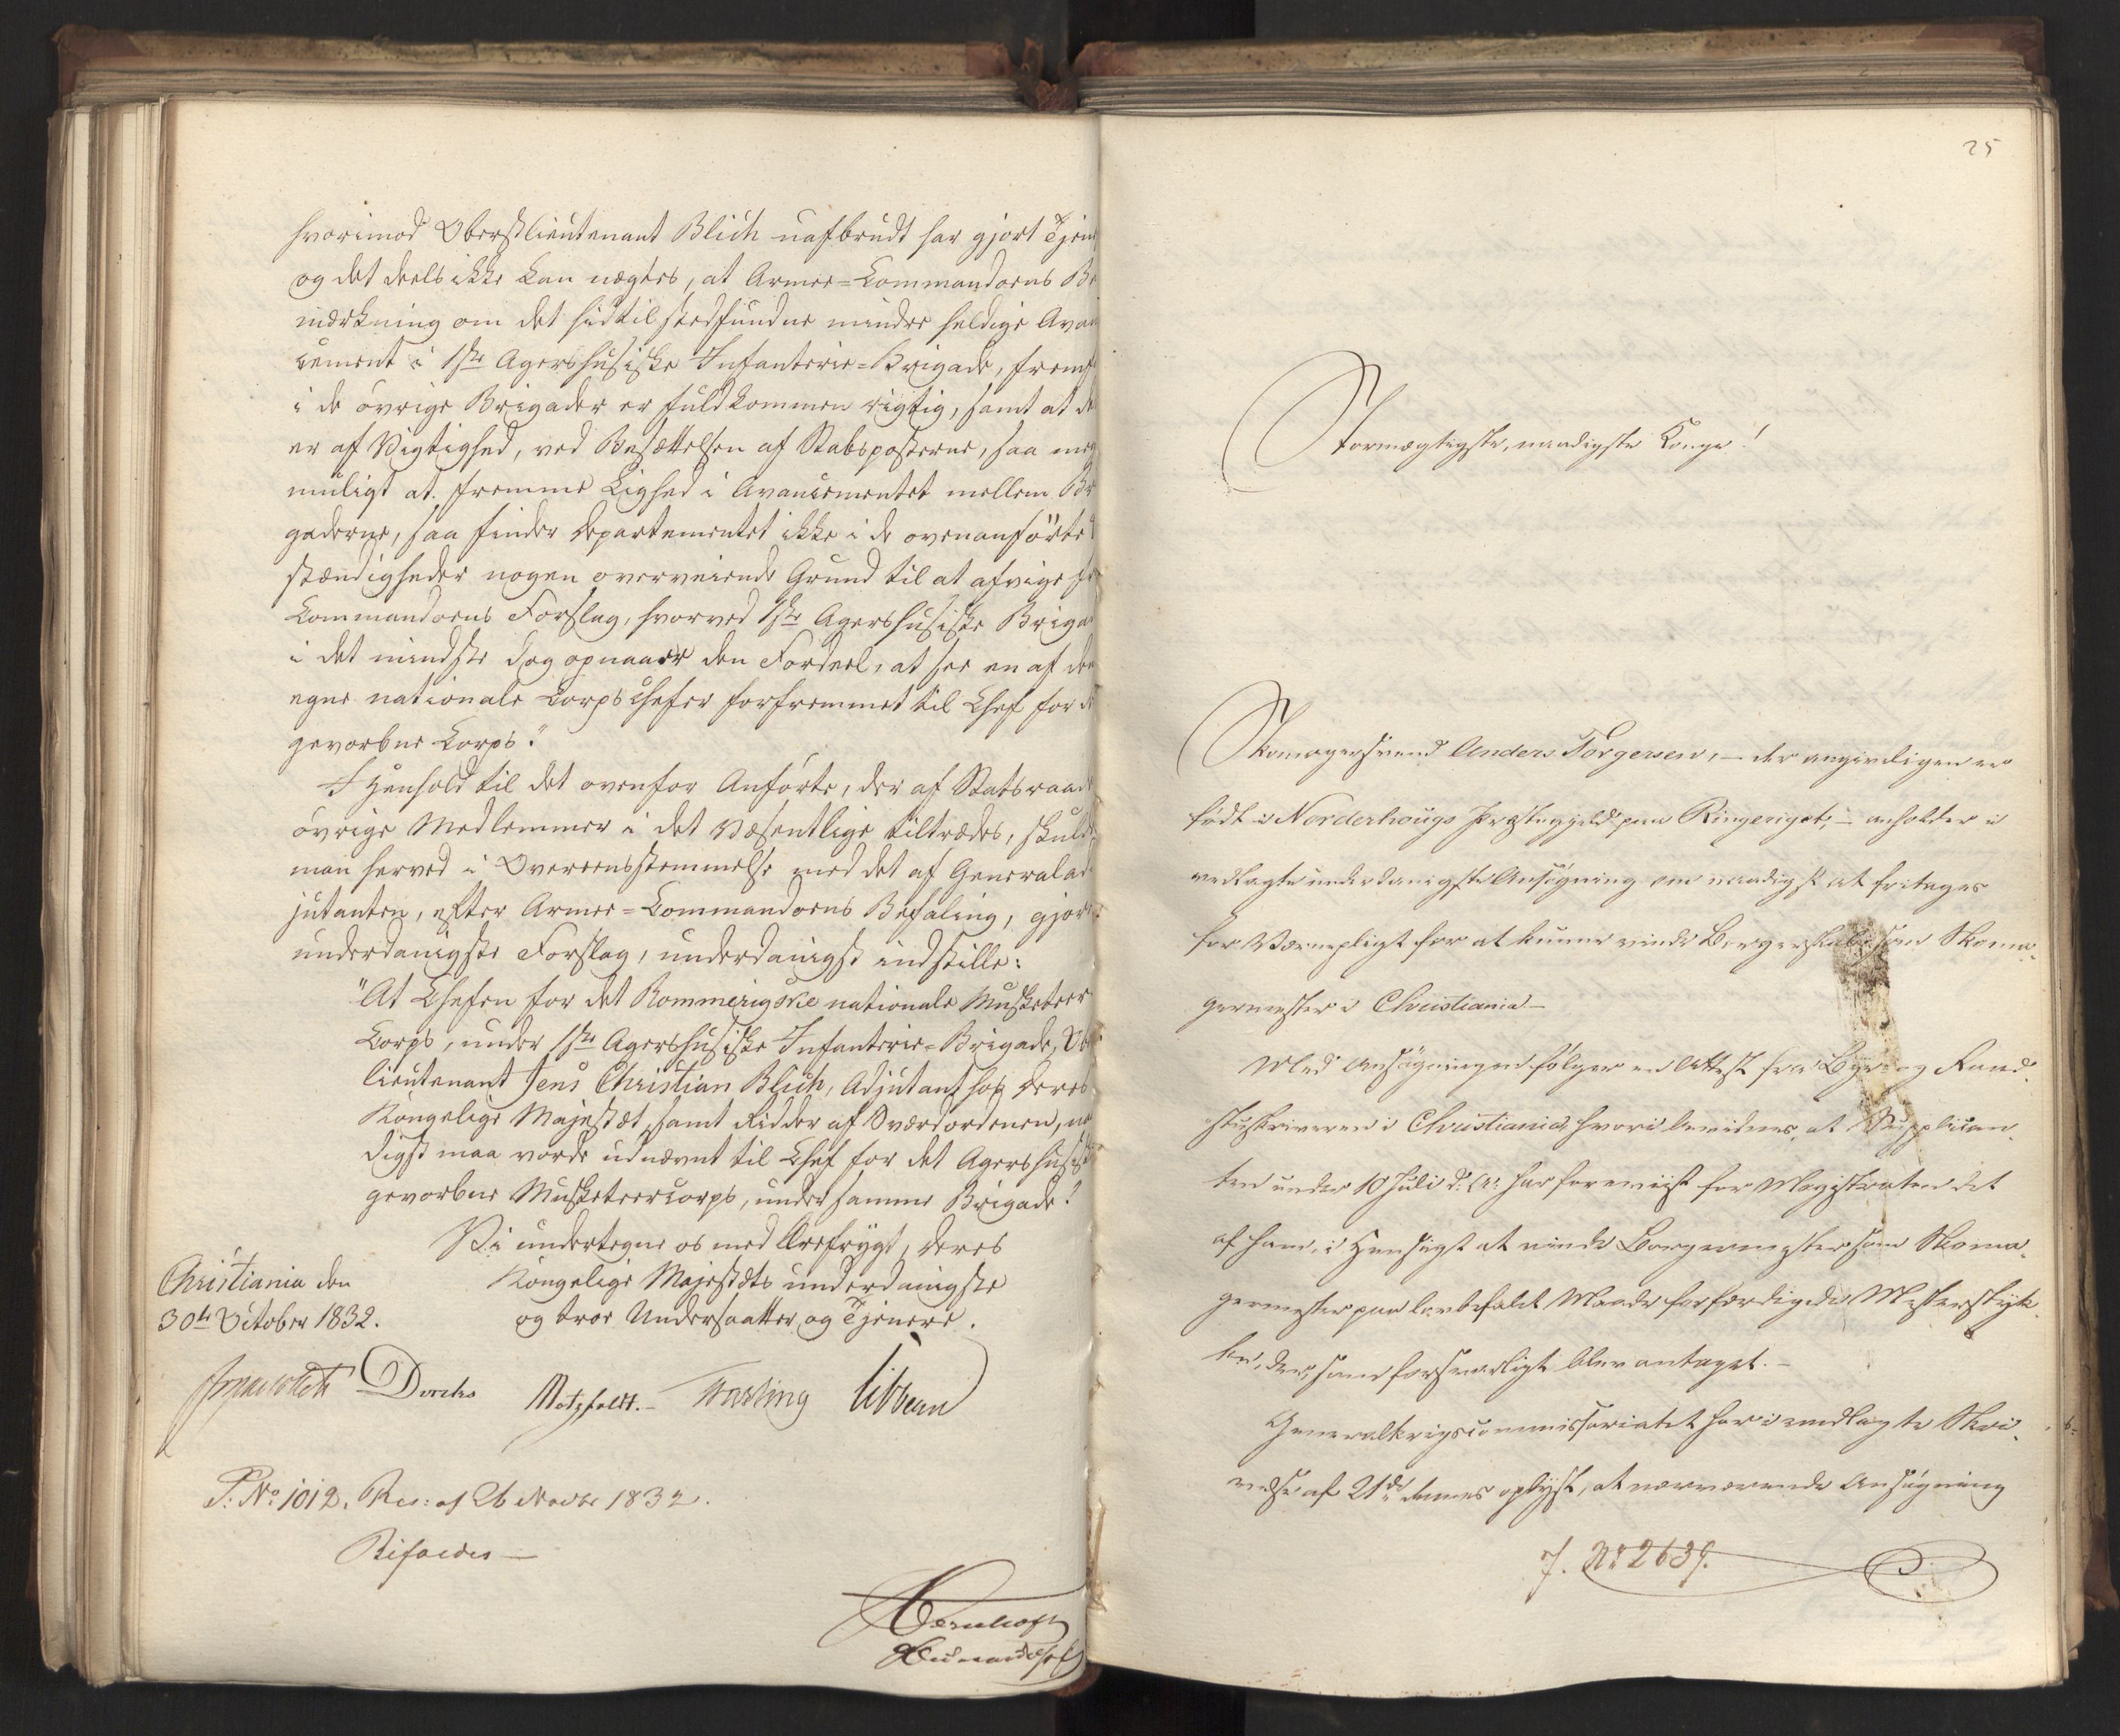 hvorimod Oberstlieutenant Blich uafbrudt har gjort Tjene
og det deels ikke kan nægtes, at Armee=Commandoens Be
mærkning om det hidtil stedfundne mindre heldige Avan
cement i 1ste Agershusiske Infanterie=Brigade, fremf
i de øvrige Brigader er fuldkommen rigtig, samt at de
er af Vigtighed, ved Besættelsen af Stabsposterne, saa meg
muligt at fremme Lighed i Avancementet mellem Br
gaderne, saa finder Departementet ikke i de ovenanførte
stændigheder nogen overveiende Grund til at afvige fr
Commandoens Forslag, hvorved 1ste Agershusiske Briga
i det mindste dog opnaaer den Fordeel, at see en af de
egne nationale Corpschefer forfremmet til Chef for d
gevorbne Corps."
I Henhold til det ovenfor Anførte, der af Statsraade
øvrige Medlemmer i det Væsentlige tiltrædes, skuld
man herved i Overeensstemmelse med det af Generalad
jutanten, efter Armee=Commandoens Befaling, gjor
underdanigste Forslag, underdanigst indstille:
"At Chefen for det Rommerigske nationale Musketeer
Corps, under 1ste Agershusiske Infanterie=Brigade, Ob
lieutenant Jens Christian Blich, Adjutant hos Deres
Kongelige Majestæt, samt Ridder af Sværdordenen, na
digst maa vorde udnævnt til Chef for det Agershusis
gevorbne Musketeercorps, under samme Brigade."
Vi undertegne os med Ærefrygt, Deres
Christiania den Kongelige Majestæts underdanigste
30te October 1832. og troe Undersaatter og Tjenere.
Diriks Motzfeldt. Fasting Vibbeun
P: No 1012. Res: af 26 Novbr 1832.
Bifaldes —
25
Stormægtigste, naadigste Konge!
Skomagersvend Anders Torgersen, — der angivligen er
født i Norderhougs Præstegjeld paa Ringeriget, — anholder i
vedlagte underdanigste Ansøgning om naadigst at fritages
for Værnepligt for at kunne vinde Borgerskab som Skoma-
germester i Christiania —
Med Ansøgningen følger en Attest fra Bye- og Raad-
stueskriveren i Christiania, hvori bevidnes, at Supplican-
ten under 10 Juli d: A: har foreviist for Magistraten det
af ham, i Hensigt at vinde Borger som Skoma-
germester paa lovbefalet Maade forfærdigede Mesterstyk-
ke, der som forsvarligt blev antaget. —
Generalkrigscommissariatet har i vedlagte Skri-
velse af 21de dennes oplyst, at nærværende Ansøgning
J. No 2639.